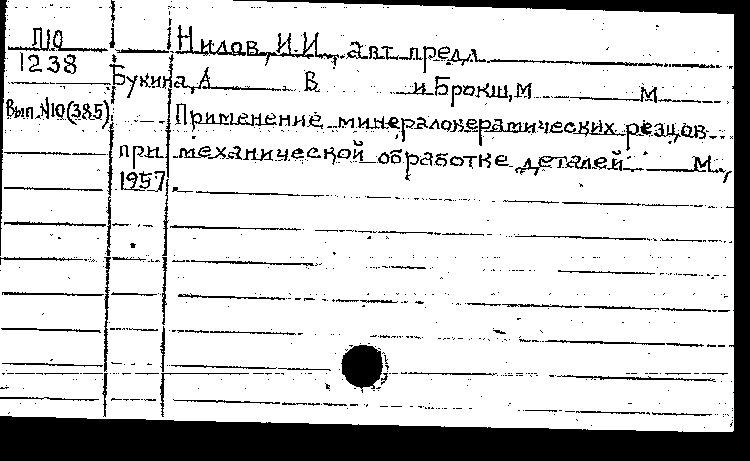 П10
1238
Вып.№10(385)
Нилов, И.И., авт предл
Букина, А В и Брокш, М М
Применение минералокерамических резцов
при механической обработке деталей М.,
1957.